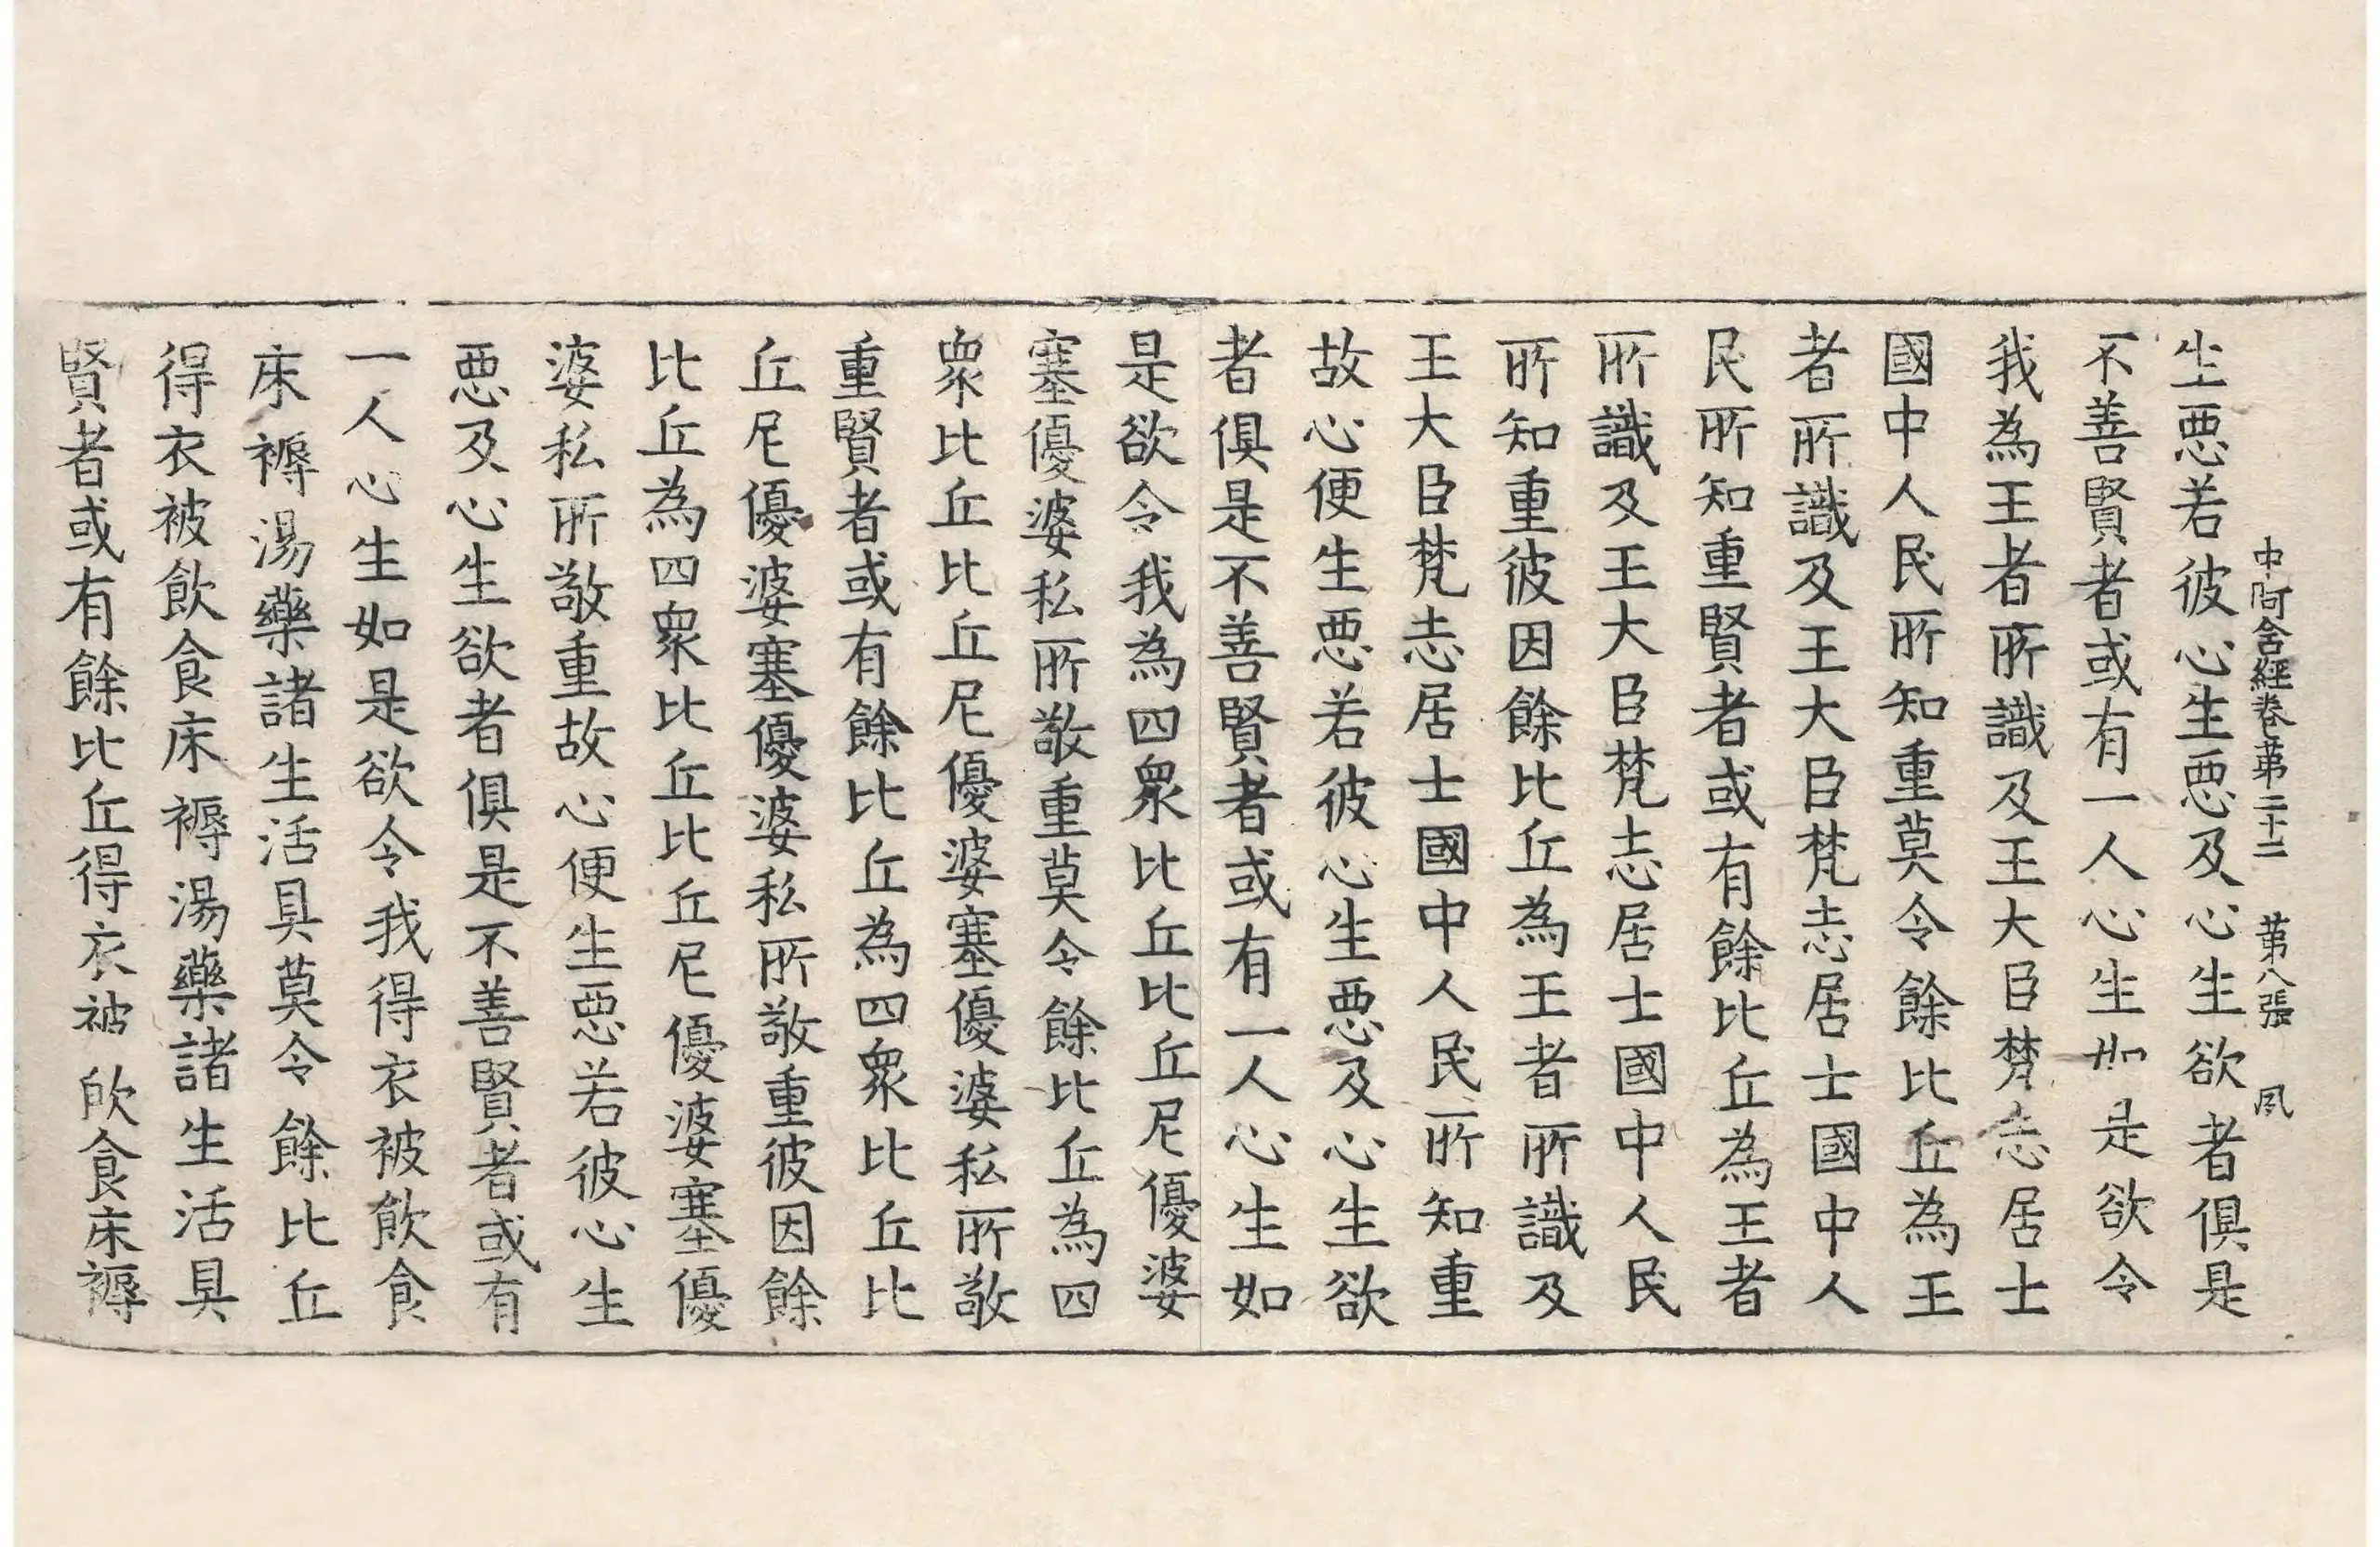 中阿含經卷第二十二 第八張 夙
生悪若彼心生悪及心生欲者俱是
不善賢者或有一人心生如是欲令
我為王者所識及王大臣梵志居士
國中人民所知重莫令餘比丘為王
者所識及王大臣梵志居士國中人
民所知重賢者或有餘比丘為王者
所識及王大臣梵志居士國中人民
所知重彼因餘比丘為王者所識及
王大臣梵志居士國中人民所知重
故心便生悪若彼心生悪及心生欲
者俱是不善賢者或有一人心生如
是欲令我為四衆比丘比丘尼優婆
塞優婆私所敬重莫令餘比丘為四
衆比丘比丘尼優婆塞優婆私所敬
重賢者或有餘比丘為四衆比丘比
丘尼優婆塞優婆私所敬重彼因餘
比丘為四衆比丘比丘尼優婆塞優
婆私所敬重故心便生悪若彼心生
悪及心生欲者俱是不善賢者或有
一人心生如是欲令我得衣被飲食
床褥湯藥諸生活具莫令餘比丘
得衣被飲食床褥湯藥諸生活具
賢者或有餘比丘得衣被飲食床褥